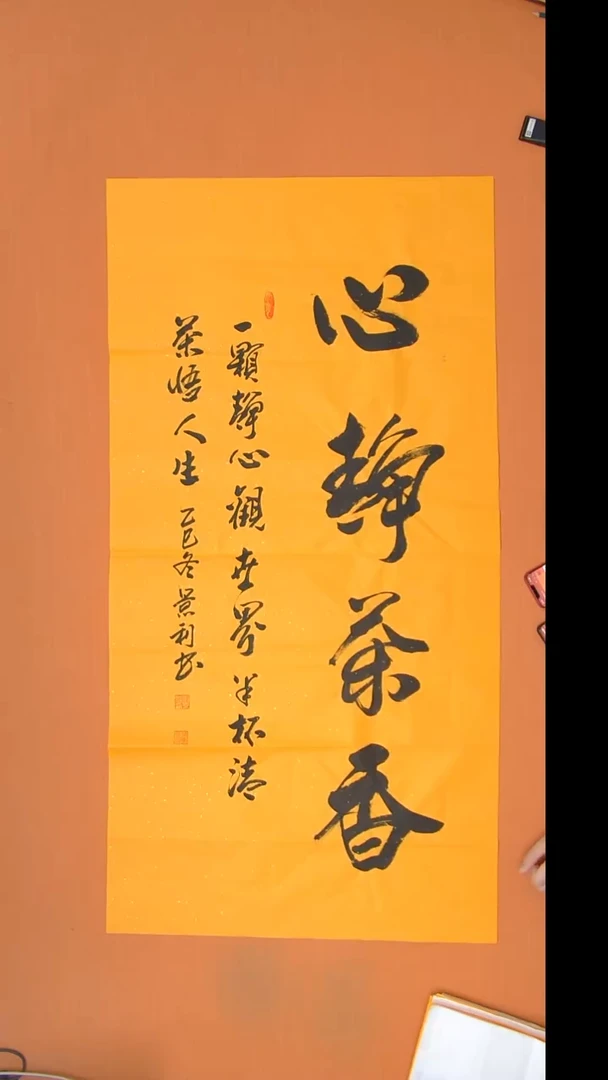 心靜茶香
一顆靜心觀世界半杯清
茶悟人生 乙巳冬景利書